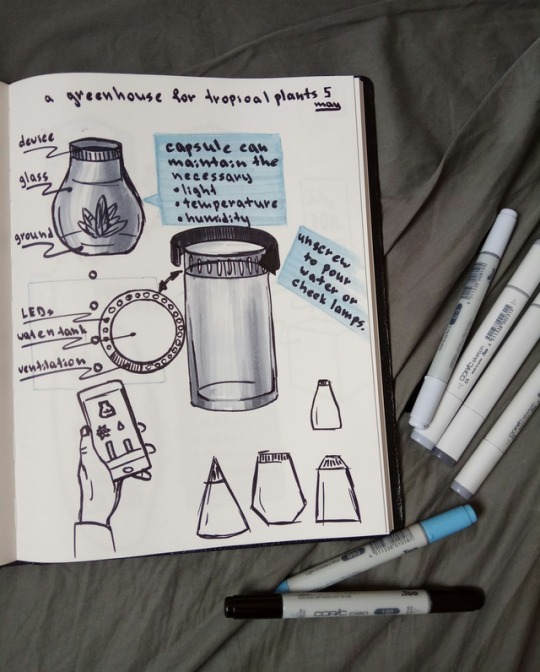 a greenhouse for tropical plants 5
may
device
glass
ground
capsule can
maintain the
necessary
• light
• temperature
• humidity
unscrew
to pour
water or
check lamps.
LEDs
water tank
ventilation
COPIC
COPIC
100